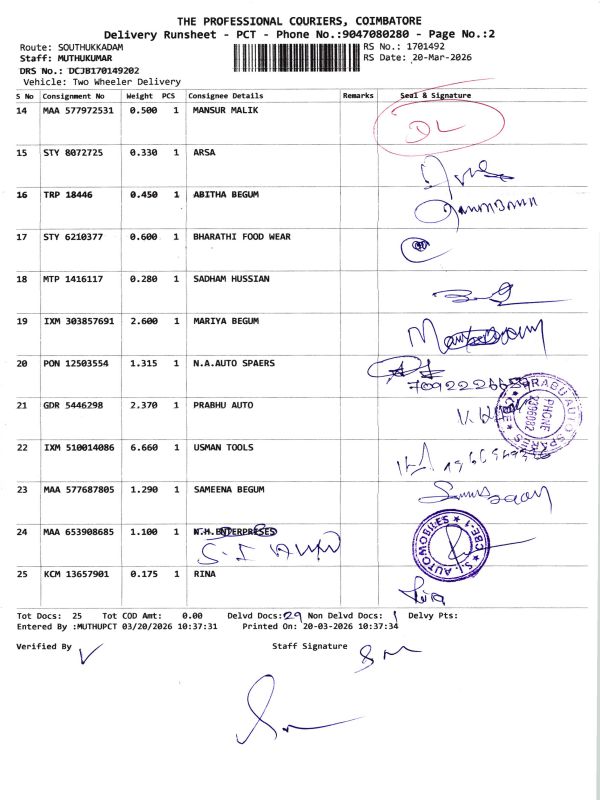 THE PROFESSIONAL COURIERS, COIMBATORE
Delivery Runsheet - PCT - Phone No.:9047080280 - Page No.:2
Route: SOUTHUKKADAM RS No.: 1701492
Staff: MUTHUKUMAR RS Date: 20-Mar-2026
DRS No.: DCJB170149202
Vehicle: Two Wheeler Delivery
S No Consignment No Weight PCS Consignee Details Remarks Seal & Signature
14 MAA 577972531 0.500 1 MANSUR MALIK DL
15 STY 8072725 0.330 1 ARSA
16 TRP 18446 0.450 1 ABITHA BEGUM
17 STY 6210377 0.600 1 BHARATHI FOOD WEAR
18 MTP 1416117 0.280 1 SADHAM HUSSIAN
19 IXM 303857691 2.600 1 MARIYA BEGUM
20 PON 12503554 1.315 1 N.A.AUTO SPAERS
21 GDR 5446298 2.370 1 PRABHU AUTO
22 IXM 510014086 6.660 1 USMAN TOOLS
23 MAA 577687805 1.290 1 SAMEENA BEGUM
24 MAA 653908685 1.100 1 N.H.ENTERPRESES
S.J. AUTOMOBILES ★ CBE-1 ★
25 KCM 13657901 0.175 1 RINA
Tot Docs: 25 Tot COD Amt: 0.00 Delvd Docs: 29 Non Delvd Docs: 1 Delvy Pts:
Entered By :MUTHUPCT 03/20/2026 10:37:31 Printed On: 20-03-2026 10:37:34
Verified By Staff Signature